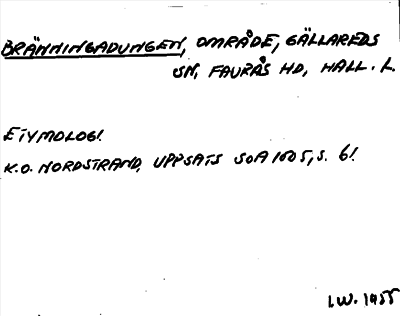 BRÄNNINGADUNGEN, OMRÅDE, GÄLLAREDS
SN, FAURÅS HD, HALL. L.
ETYMOLOGI
K.O. NORDSTRAND, UPPSATS SOA 1005, S. 6!
I.W. 1955